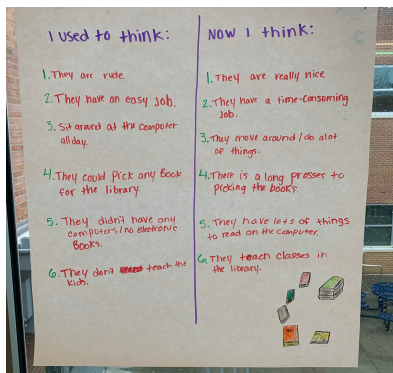 I used to think:
1. They are rude.
2. They have an easy job.
3. Sit around at the computer
all day.
4. They could pick any book
for the library.
5. They didn't have any
computers/no electronic
Books.
6. They don't teach the
kids.
Now I think:
1. They are really nice
2. They have a time-consuming
Job.
3. They move around/do alot
of things.
4. There is a long prosses to
picking the books.
5. They have lots of things
to read on the computer.
6. They teach classes in
the library.